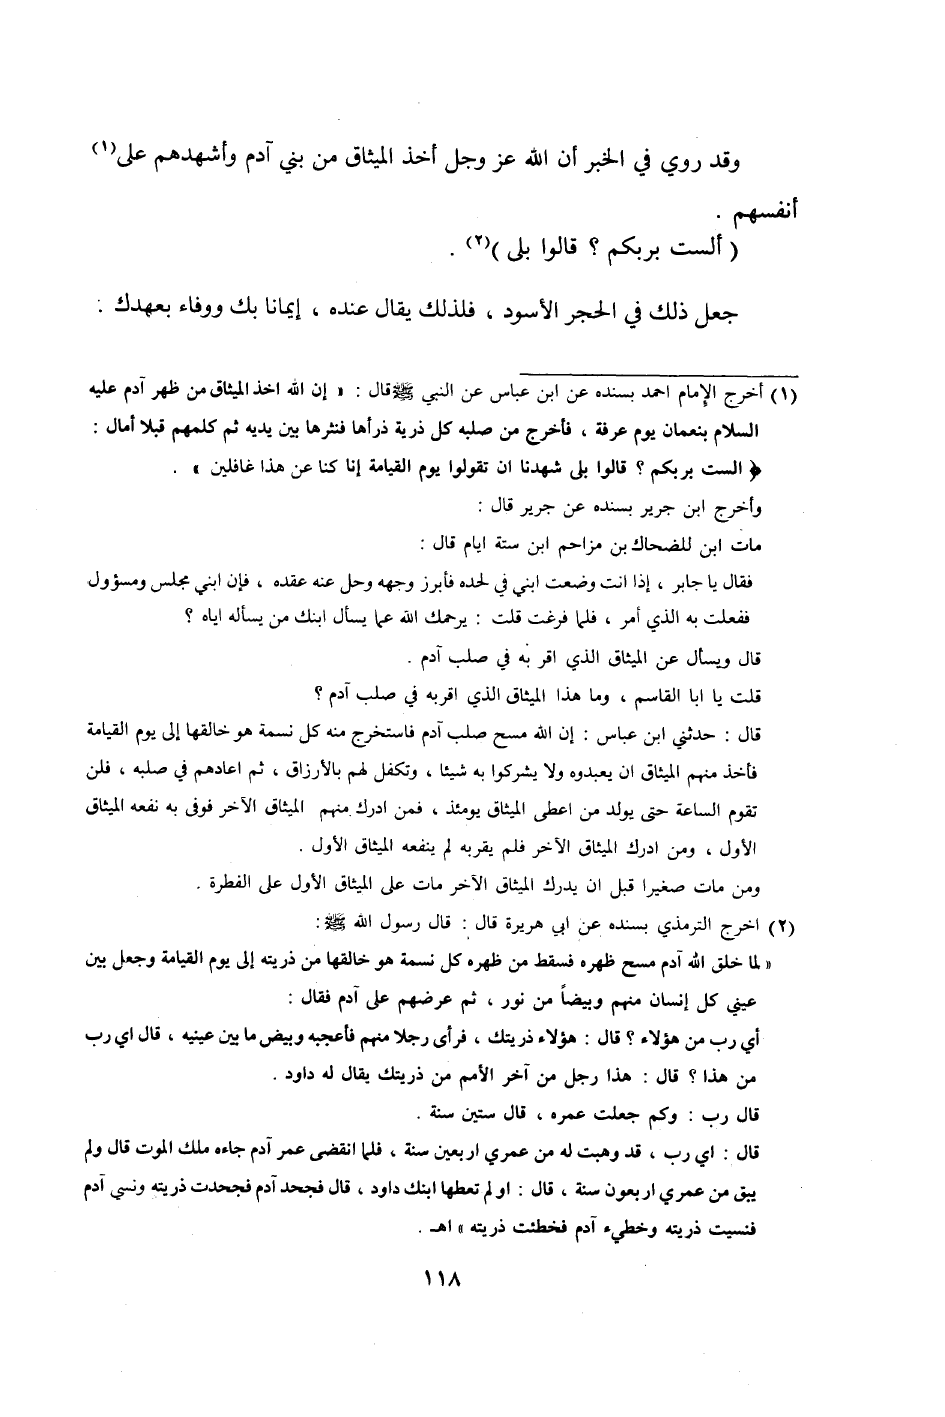 وقد روي في الخبر أن الله عز وجل أخذ الميثاق من بني آدم وأشهدهم على(١)
أنفسهم .
( ألست بربكم ؟ قالوا بلى )(٢) .
جعل ذلك في الحجر الأسود ، فلذلك يقال عنده ، إيمانا بك ووفاء بعهدك .
(١) أخرج الإمام احمد بسنده عن ابن عباس عن النبي ﷺ قال : « إن الله اخذ الميثاق من ظهر آدم عليه
السلام بنعمان يوم عرفة ، فأخرج من صلبه كل ذرية ذرأها فنثرها بين يديه ثم كلمهم قبلا أمال :
﴿ الست بربكم ؟ قالوا بلى شهدنا ان تقولوا يوم القيامة إنا كنا عن هذا غافلين » .
وأخرج ابن جرير بسنده عن جرير قال :
مات ابن للضحاك بن مزاحم ابن ستة ايام قال :
فقال يا جابر ، إذا انت وضعت ابني في لحده فأبرز وجهه وحل عنه عقده ، فإن ابني مجلس ومسؤول
ففعلت به الذي أمر ، فلما فرغت قلت : يرحمك الله عما يسأل ابنك من يسأله اياه ؟
قال ويسأل عن الميثاق الذي اقر به في صلب آدم .
قلت يا ابا القاسم ، وما هذا الميثاق الذي اقربه في صلب آدم ؟
قال : حدثني ابن عباس : إن الله مسح صلب آدم فاستخرج منه كل نسمة هو خالقها إلى يوم القيامة
فأخذ منهم الميثاق ان يعبدوه ولا يشركوا به شيئا ، وتكفل لهم بالأرزاق ، ثم اعادهم في صلبه ، فلن
تقوم الساعة حتى يولد من اعطى الميثاق يومئذ ، فمن ادرك منهم الميثاق الآخر فوفى به نفعه الميثاق
الأول ، ومن ادرك الميثاق الآخر فلم يقربه لم ينفعه الميثاق الأول .
ومن مات صغيرا قبل ان يدرك الميثاق الآخر مات على الميثاق الأول على الفطرة .
(٢) اخرج الترمذي بسنده عن ابي هريرة قال : قال رسول الله ﷺ :
« لما خلق الله آدم مسح ظهره فسقط من ظهره كل نسمة هو خالقها من ذريته إلى يوم القيامة وجعل بين
عيني كل إنسان منهم وبيضاً من نور ، ثم عرضهم على آدم فقال :
أي رب من هؤلاء ؟ قال : هؤلاء ذريتك ، فرأى رجلا منهم فأعجبه وبيض ما بين عينيه ، قال اي رب
من هذا ؟ قال : هذا رجل من آخر الأمم من ذريتك يقال له داود .
قال رب : وكم جعلت عمره ، قال ستين سنة .
قال : اي رب ، قد وهبت له من عمري اربعين سنة ، فلما انقضى عمر آدم جاءه ملك الموت قال ولم
يبق من عمري اربعون سنة ، قال : او لم تعطها ابنك داود ، قال فجحد آدم فجحدت ذريته ونسي آدم
فنسيت ذريته وخطيء آدم فخطئت ذريته » اهـ .
١١٨